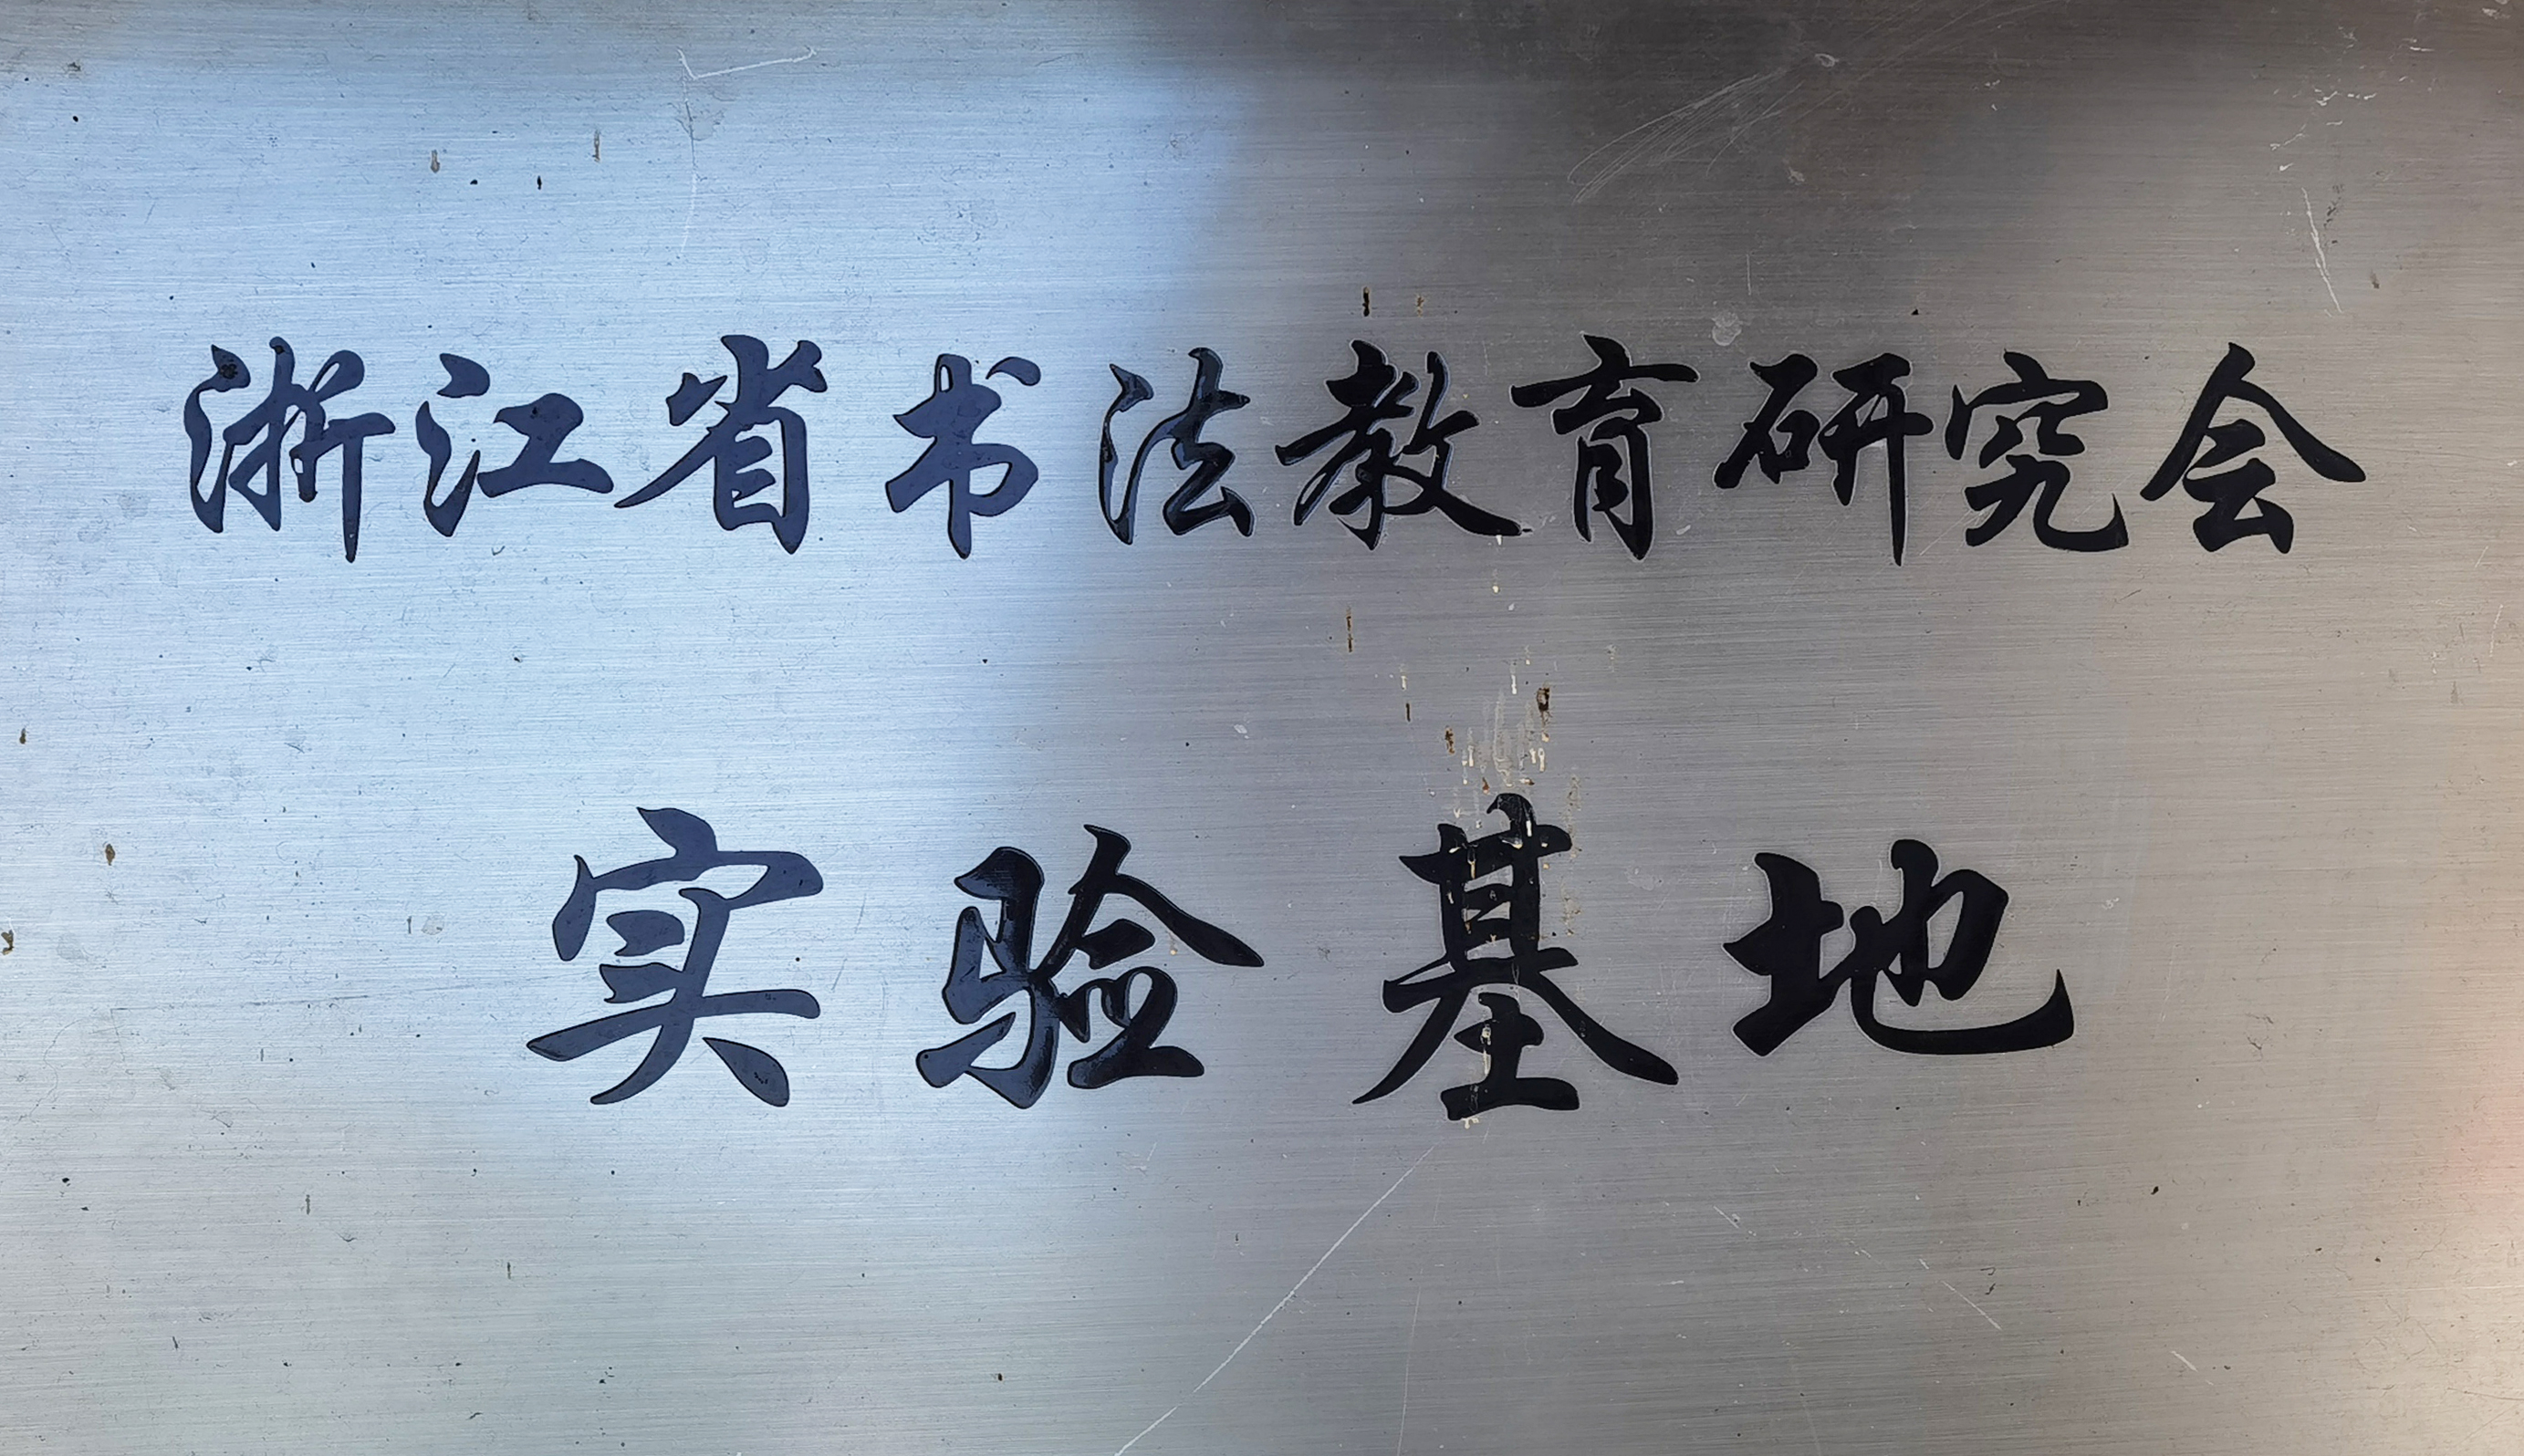 浙江省书法教育研究会
实验基地